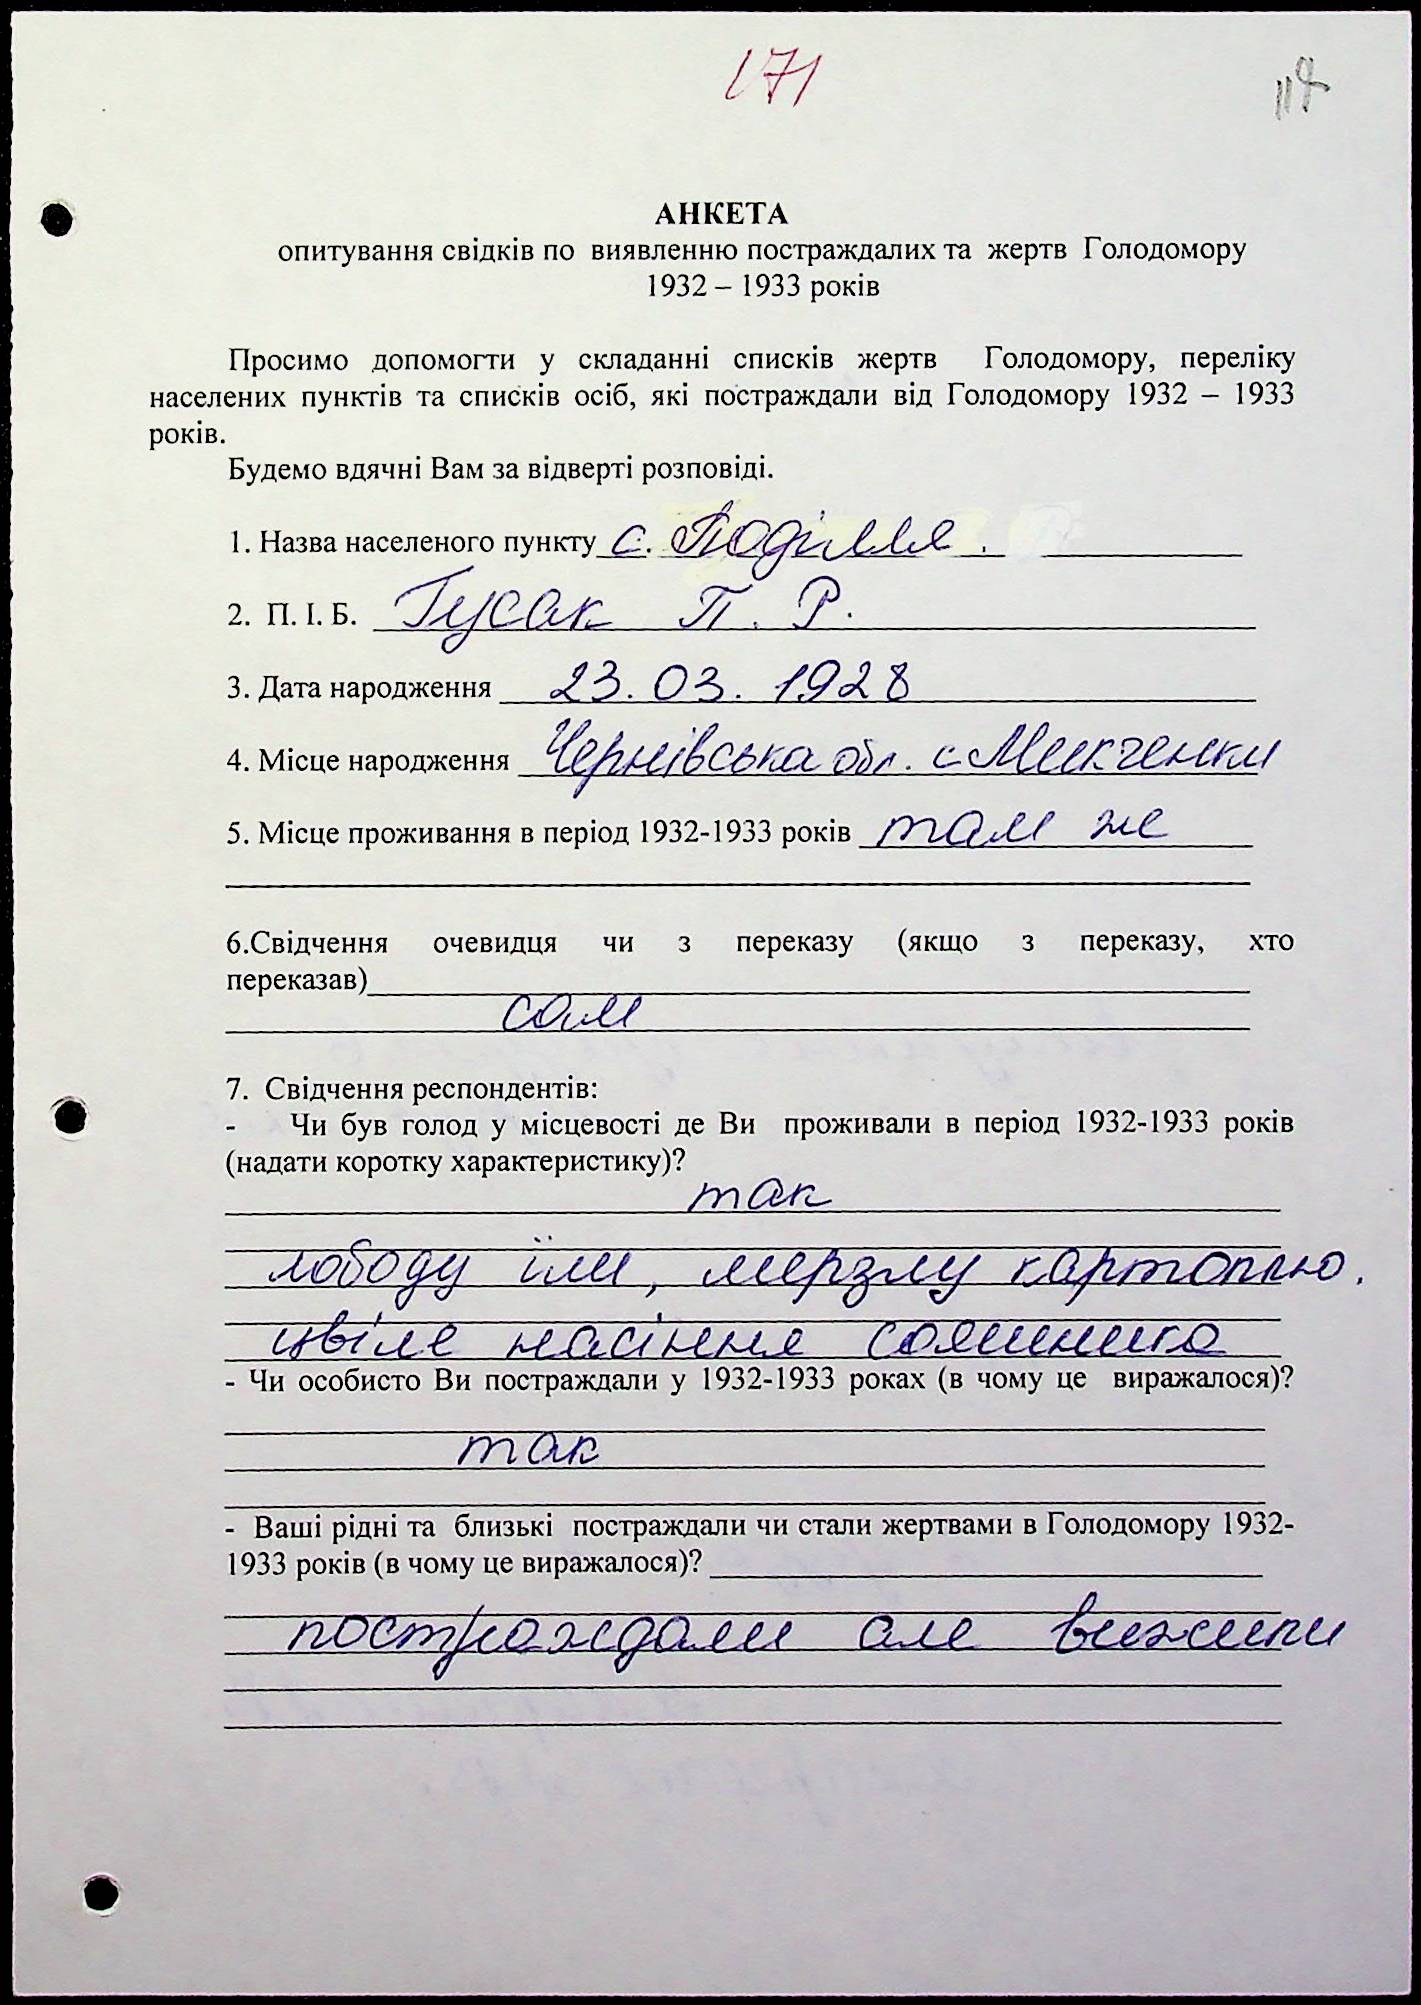 171
117
АНКЕТА
опитування свідків по виявленню постраждалих та жертв Голодомору
1932 – 1933 років
Просимо допомогти у складанні списків жертв Голодомору, переліку
населених пунктів та списків осіб, які постраждали від Голодомору 1932 – 1933
років.
Будемо вдячні Вам за відверті розповіді.
1. Назва населеного пункту с. Поділля.
2. П. І. Б. Гусак П. Р.
3. Дата народження 23.03.1928
4. Місце народження Чернівська обл. с
5. Місце проживання в період 1932-1933 років там же
6.Свідчення очевидця чи з переказу (якщо з переказу, хто
переказав)
сам
7. Свідчення респондентів:
- Чи був голод у місцевості де Ви проживали в період 1932-1933 років
(надати коротку характеристику)?
так
лободу їли, мерзлу картоплю.
цвіле насіння сояшника
- Чи особисто Ви постраждали у 1932-1933 роках (в чому це виражалося)?
так
- Ваші рідні та близькі постраждали чи стали жертвами в Голодомору 1932-
1933 років (в чому це виражалося)?
постраждали але вижили